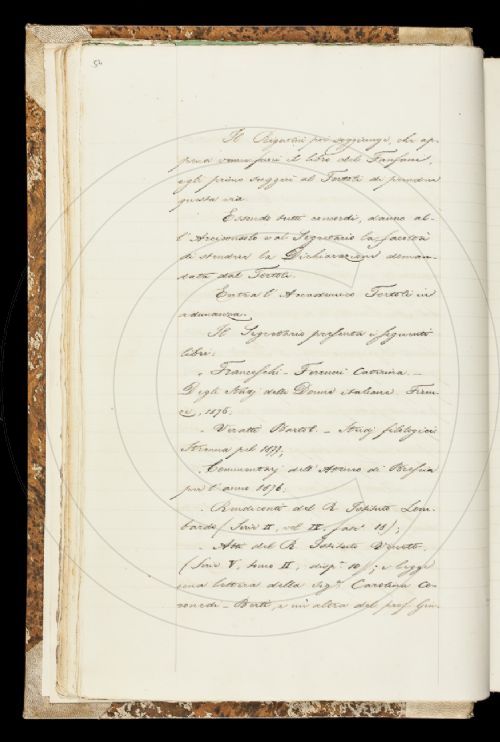 52
Il Rigutini poi soggiunge, che ap-
pena venne fuori il libro del Fanfani,
egli primo suggerì al Tortoli di prendere
questa via.
Essendo tutti concordi, danno al-
l'Arciconsolo e al Segretario la facoltà
di stendere la Dichiarazione deman-
data dal Tortoli.
Entra l'Accademico Tortoli in
adunanza.
Il Segretario presenta i seguenti
libri:
Franceschi - Ferrucci Caterina. -
Degli Studj delle Donne italiane. Firen-
ze, 1876.
Veratti Bartol. - Studj filologici
Strenna pel 1877;
Commentarj dell'Ateneo di Brescia
per l'anno 1876.
Rendiconti del R. Istituto Lom-
bardo (Serie II, vol. IX, fasc. 18);
Atti del R. Istituto Veneto.
(Serie V, tomo II, disp. 10); e legge
una lettera della Sig.ra Carolina Co-
ronedi - Berti, e un'altra del prof. Giu-